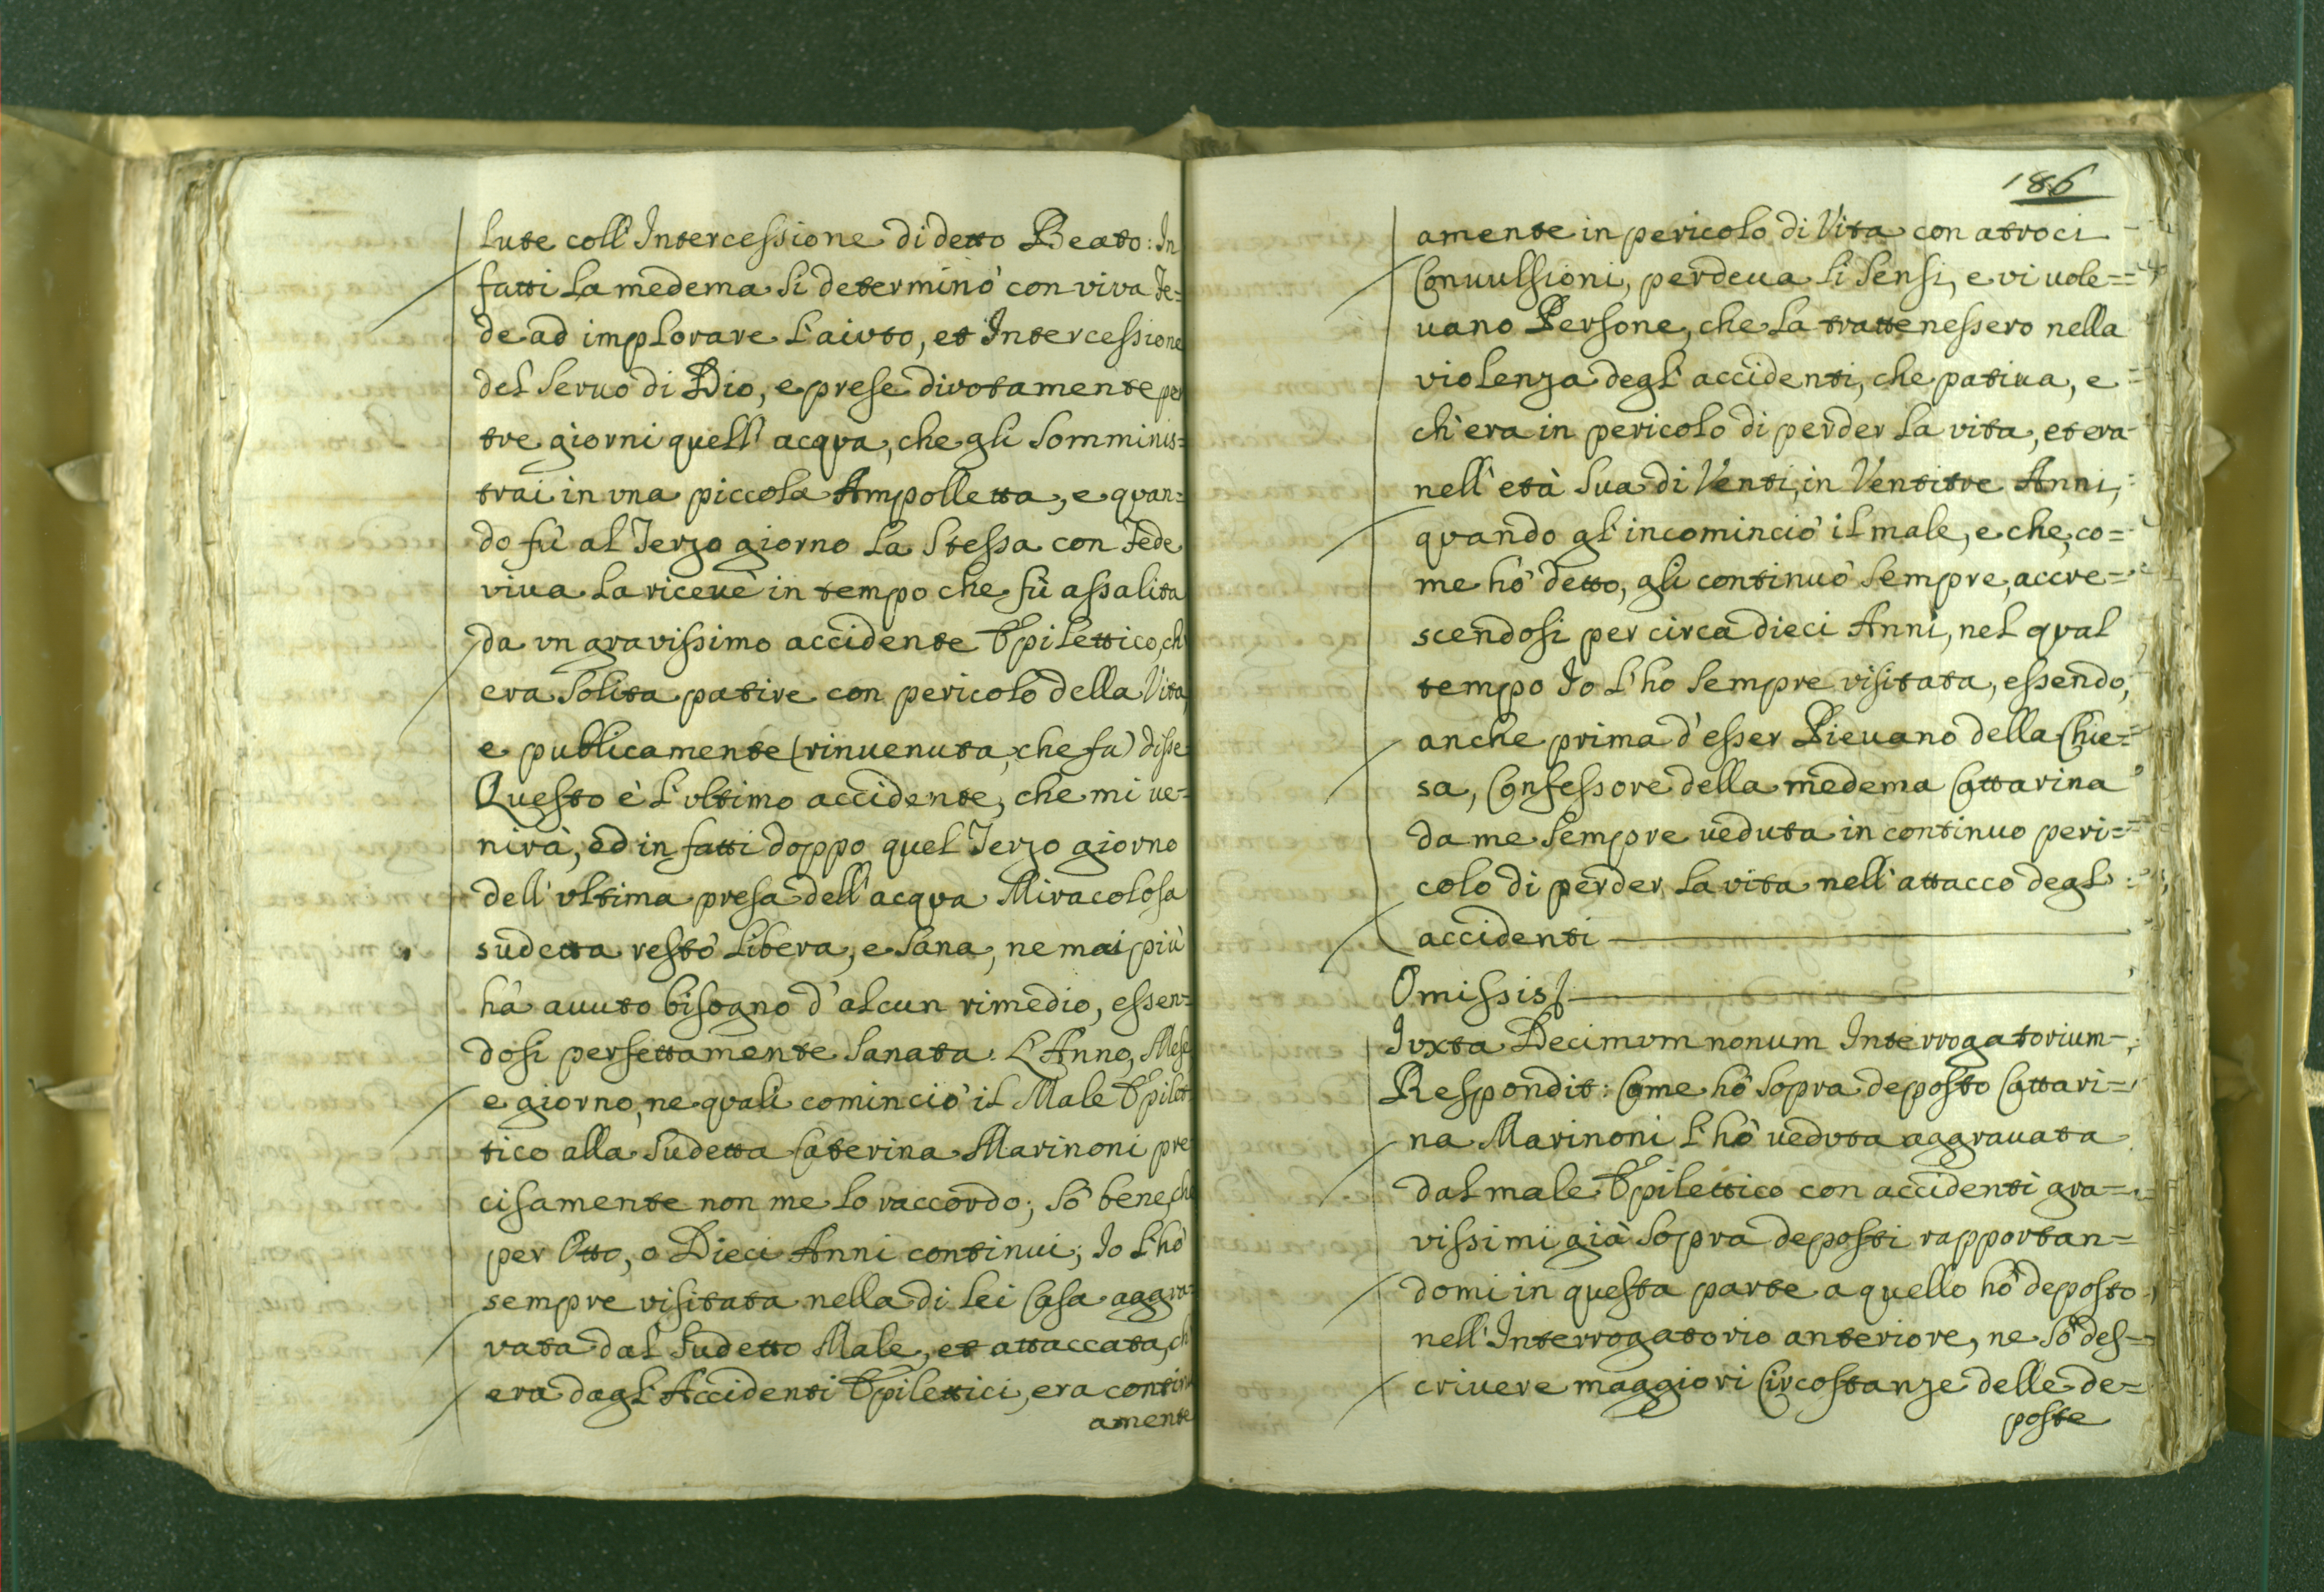 lute coll' Intercessione di detto Beato: In
fatti la medema si determinò con viva Fe=
de ad implorare l'aiuto, et Intercessione
del Seruo di Dio, e prese divotamente per
tre giorni quell' acqua, che gli somminis=
trai in vna piccola Ampolletta, e quan=
do fù al Terzo giorno la Stessa con Fede
viua la riceuè in tempo che fù assalita
da vn gravissimo accidente Epilettico, ch'
era solita patire con pericolo della Vita,
e publicamente (rinuenuta, che fu) disse
Questo è l'vltimo accidente, che mi ue=
nirà, ed in fatti doppo quel Terzo giorno
dell' vltima presa dell' acqua Miracolosa
sudetta restò libera, e sana, ne mai più
hà auuto bisogno d'alcun rimedio, essen=
dosi perfettamente sanata. L'Anno, Mese
e giorno, ne quali cominciò il Male Epilet=
tico alla sudetta Caterina Marinoni pre
cisamente non me lo raccordo; sò bene, che
per Otto, o Dieci Anni continui; Io l'hò
sempre visitata nella di lei Casa aggra=
vata dal sudetto Male, et attaccata, ch'
era dagl' Accidenti Epilettici, era continu
amente
186
amente in pericolo di Vita con atroci
Conuulsioni, perdeua li sensi, e vi uole=
uano Persone, che la trattenessero nella
violenza degl' accidenti, che patiua, e
ch'era in pericolo di perder la vita, et era
nell' età sua di Venti, in Ventitre Anni,
quando gl' incominciò il male, e che, co=
me hò detto, gli continuò sempre, accre=
scendosi per circa dieci Anni, nel qual
tempo Io l'ho sempre visitata, essendo,
anche prima d'esser Pieuano della Chie=
sa, Confessore della medema Cattarina
da me sempre ueduta in continuo peri=
colo di perder la vita nell' attacco degl'
accidenti
Omissis
Iuxta Decimum nonum Interrogatorium
Respondit: Come hò sopra deposto Cattari=
na Marinoni l'hò ueduta aggrauata
dal male Epilettico con accidenti gra=
vissimi già sopra deposti rapportan=
domi in questa parte a quello hò deposto
nell' Interrogatorio anteriore, ne sò des=
criuere maggiori Circostanze delle de=
poste